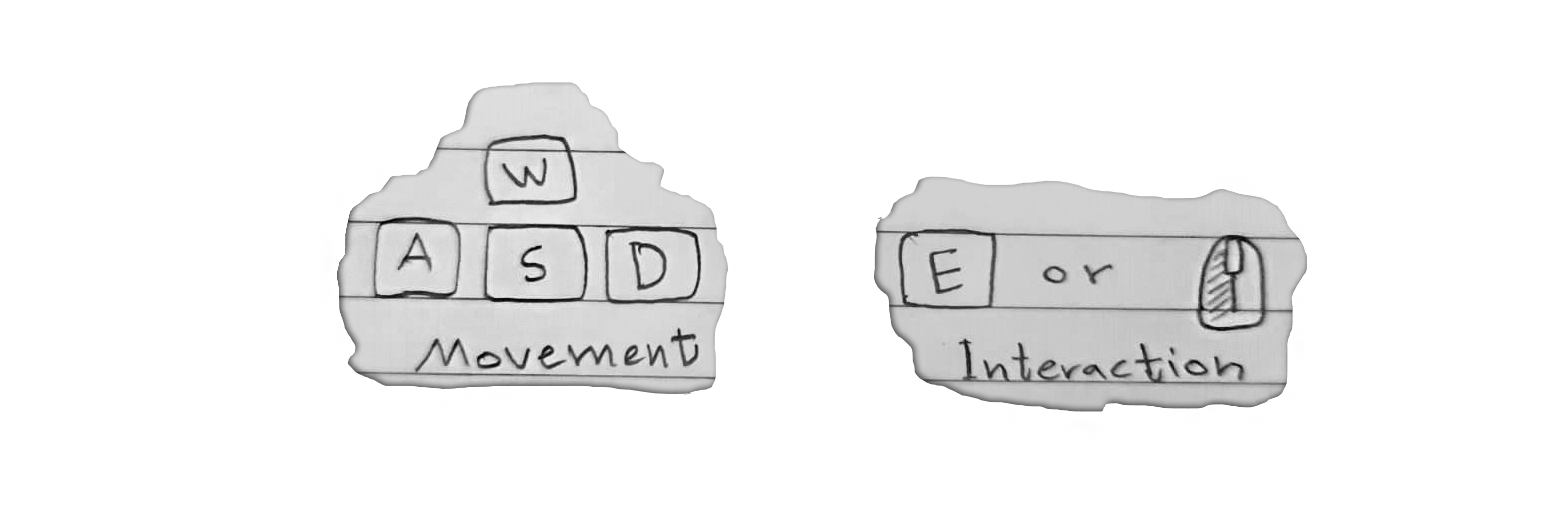 W
A S D
Movement
E or
Interaction